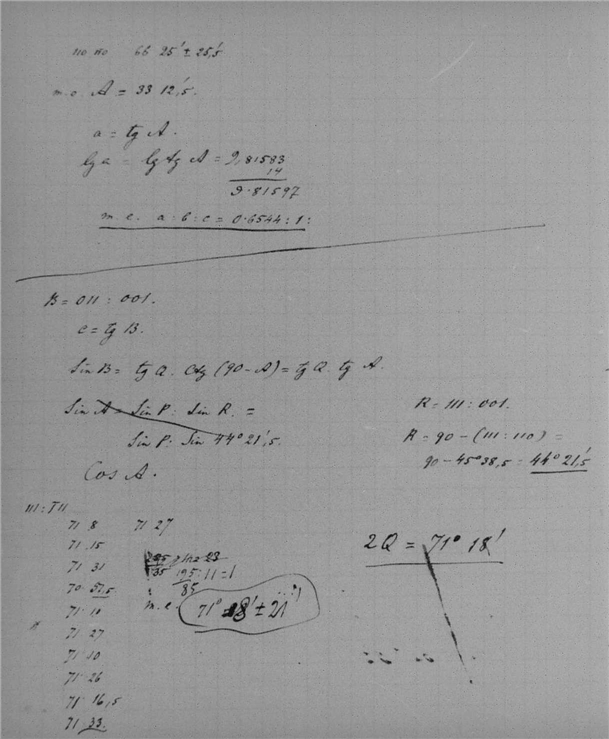 110 110 66 25' ± 25,'5
m.e. A = 33 12,'5.
a = tg A.
lg a = lg tg A = 9,81583
14
9.81597
m.e. a : b : c = 0.6544 : 1 :
B = 011 : 001.
c = tg B.
Sin B = tg Q. Ctg (90 - A) = tg Q. tg A.
Sin A = Sin P : Sin R. =
Sin P : Sin 44° 21,'5.
Cos A.
R = 111 : 001.
R = 90 - (111 : 110) =
90 - 45° 38,5 = 44° 21,'5
111 : 111
71 8 71 27
71 15
71 31
70 57,5
71 10
71 27
71 10
71 26
71 16,5
71 33.
195 : 11 =
85
m.e. 71° 18' ± 21'
2Q = 71° 18'